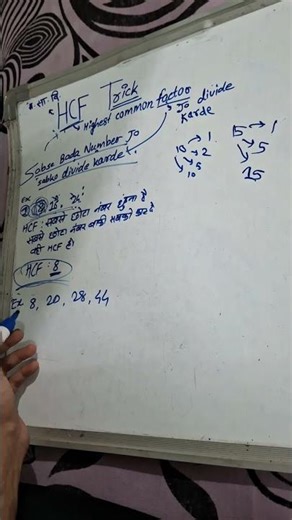 म. सा. वि.
HCF Trick
Highest common factor
Jo divide karde
Sabse Bada Number Jo
sabko divide karde.
10 → 1
→ 2
→ 5
10
15 → 1
→ 5
15
Ex:
24
HCF: सबसे छोटा नंबर ढूंढना है
सबसे छोटा नंबर बाकी सबको काट दे
वही HCF है।
HCF: 8
Ex 8, 20, 28, 44